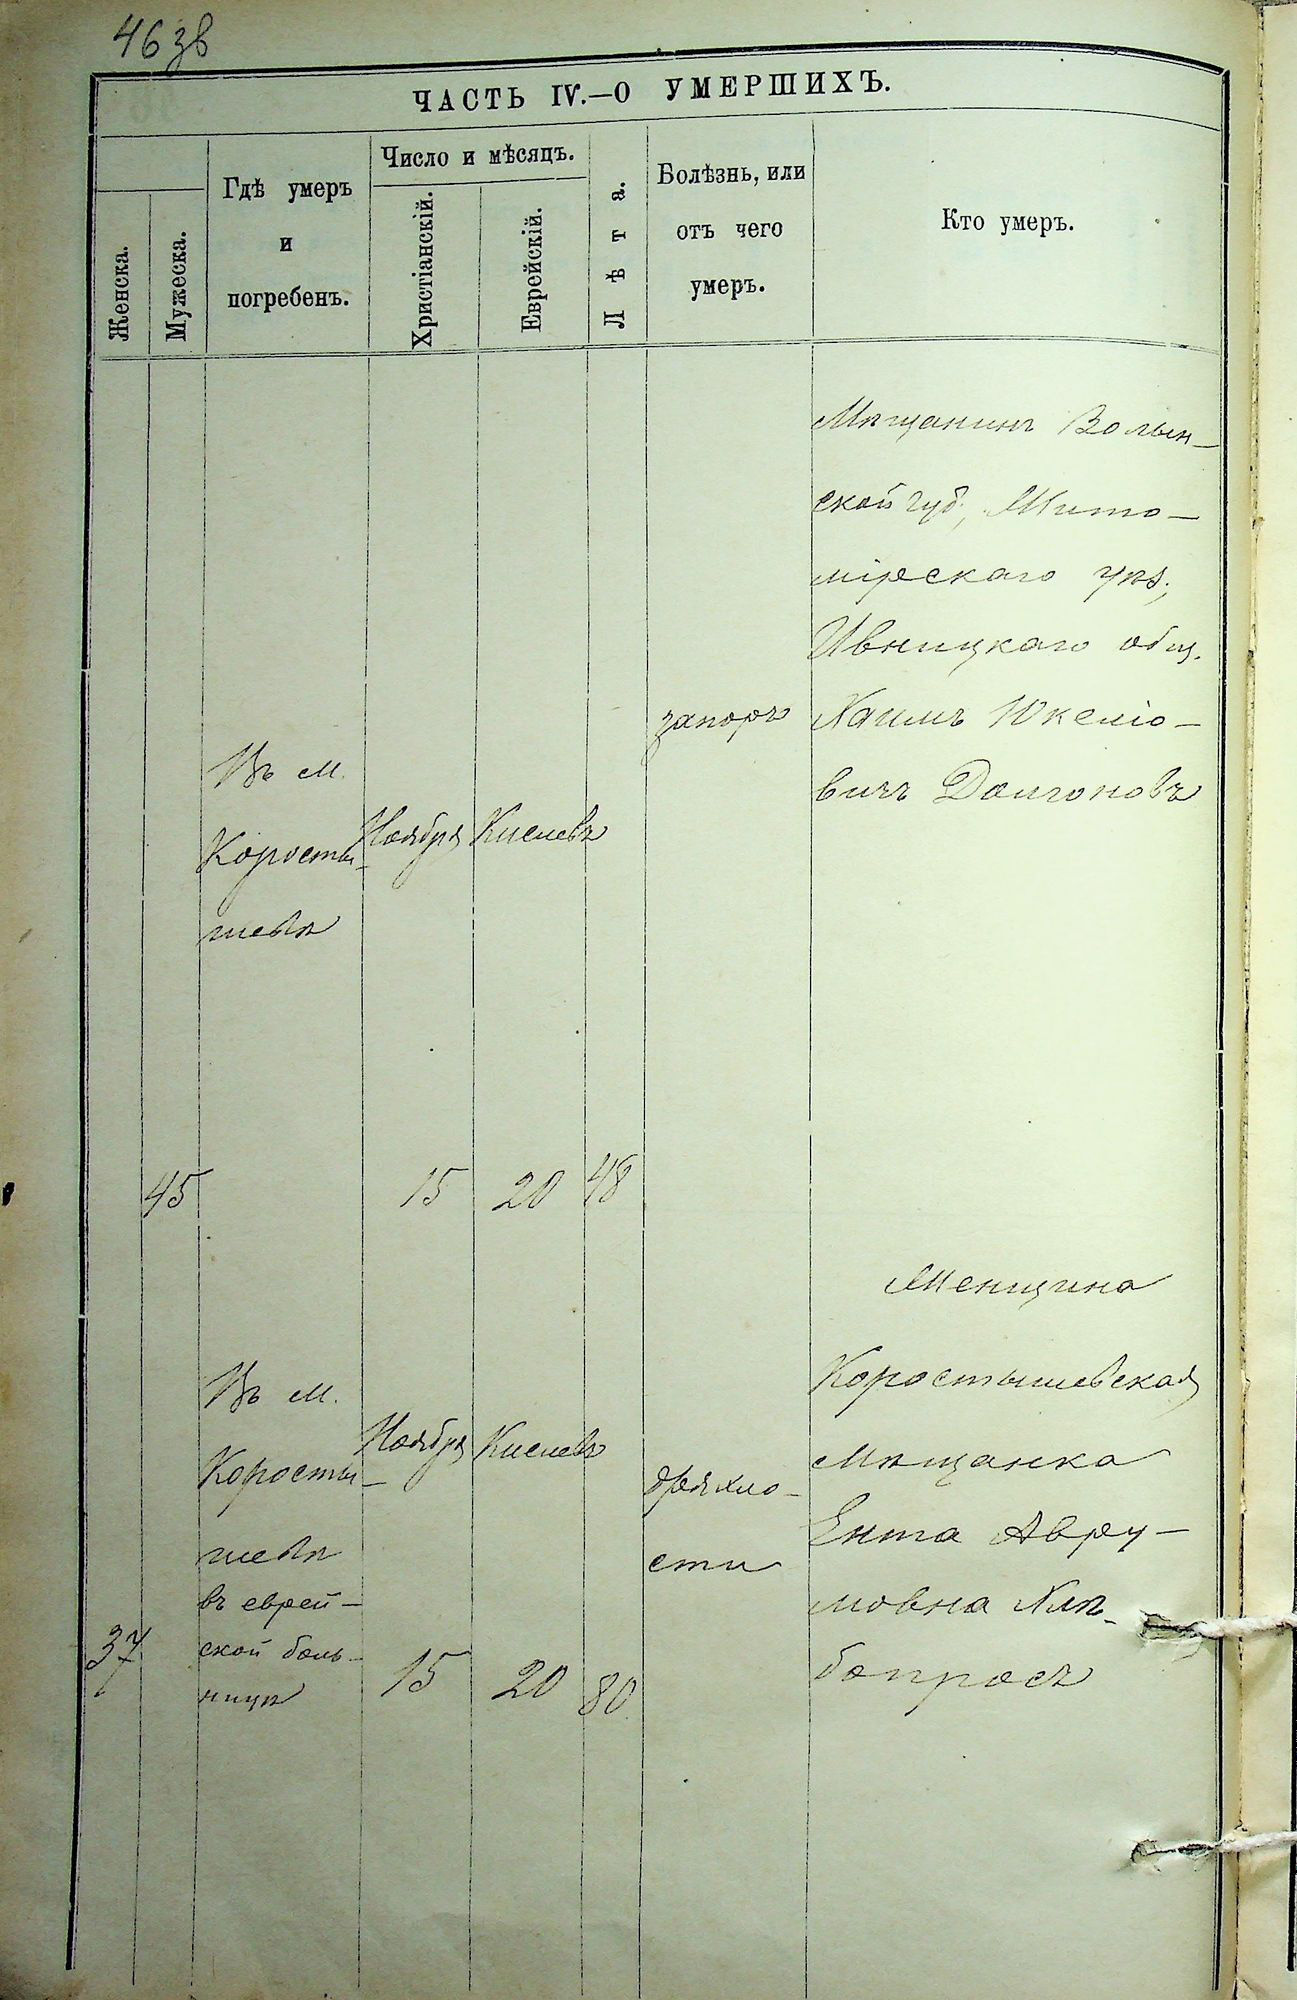 46 зв
ЧАСТЬ IV.—О УМЕРШИХЪ.
Женска.
Мужеска.
Гдѣ умеръ
и
погребенъ.
Число и мѣсяцъ.
Христіанскій.
Еврейскій.
Лѣта.
Болѣзнь, или
отъ чего
умеръ.
Кто умеръ.
45
Въ м.
Коросты-
шевѣ
Ноября
15
Кислевъ
20
48
запоръ
Мѣщанинъ Волын-
ской губ., Жито-
мірскаго уѣз.,
Ивницкаго общ.
Хаимъ Юкеліо-
вичъ Долгоновъ
37
Въ м.
Коросты-
шевѣ
въ еврей-
ской боль-
ницѣ
Ноября
15
Кислевъ
20
80
дряхло-
сти
Женщина
Коростышевская
мѣщанка
Ента Авру-
мовна Хлѣ-
бопросъ